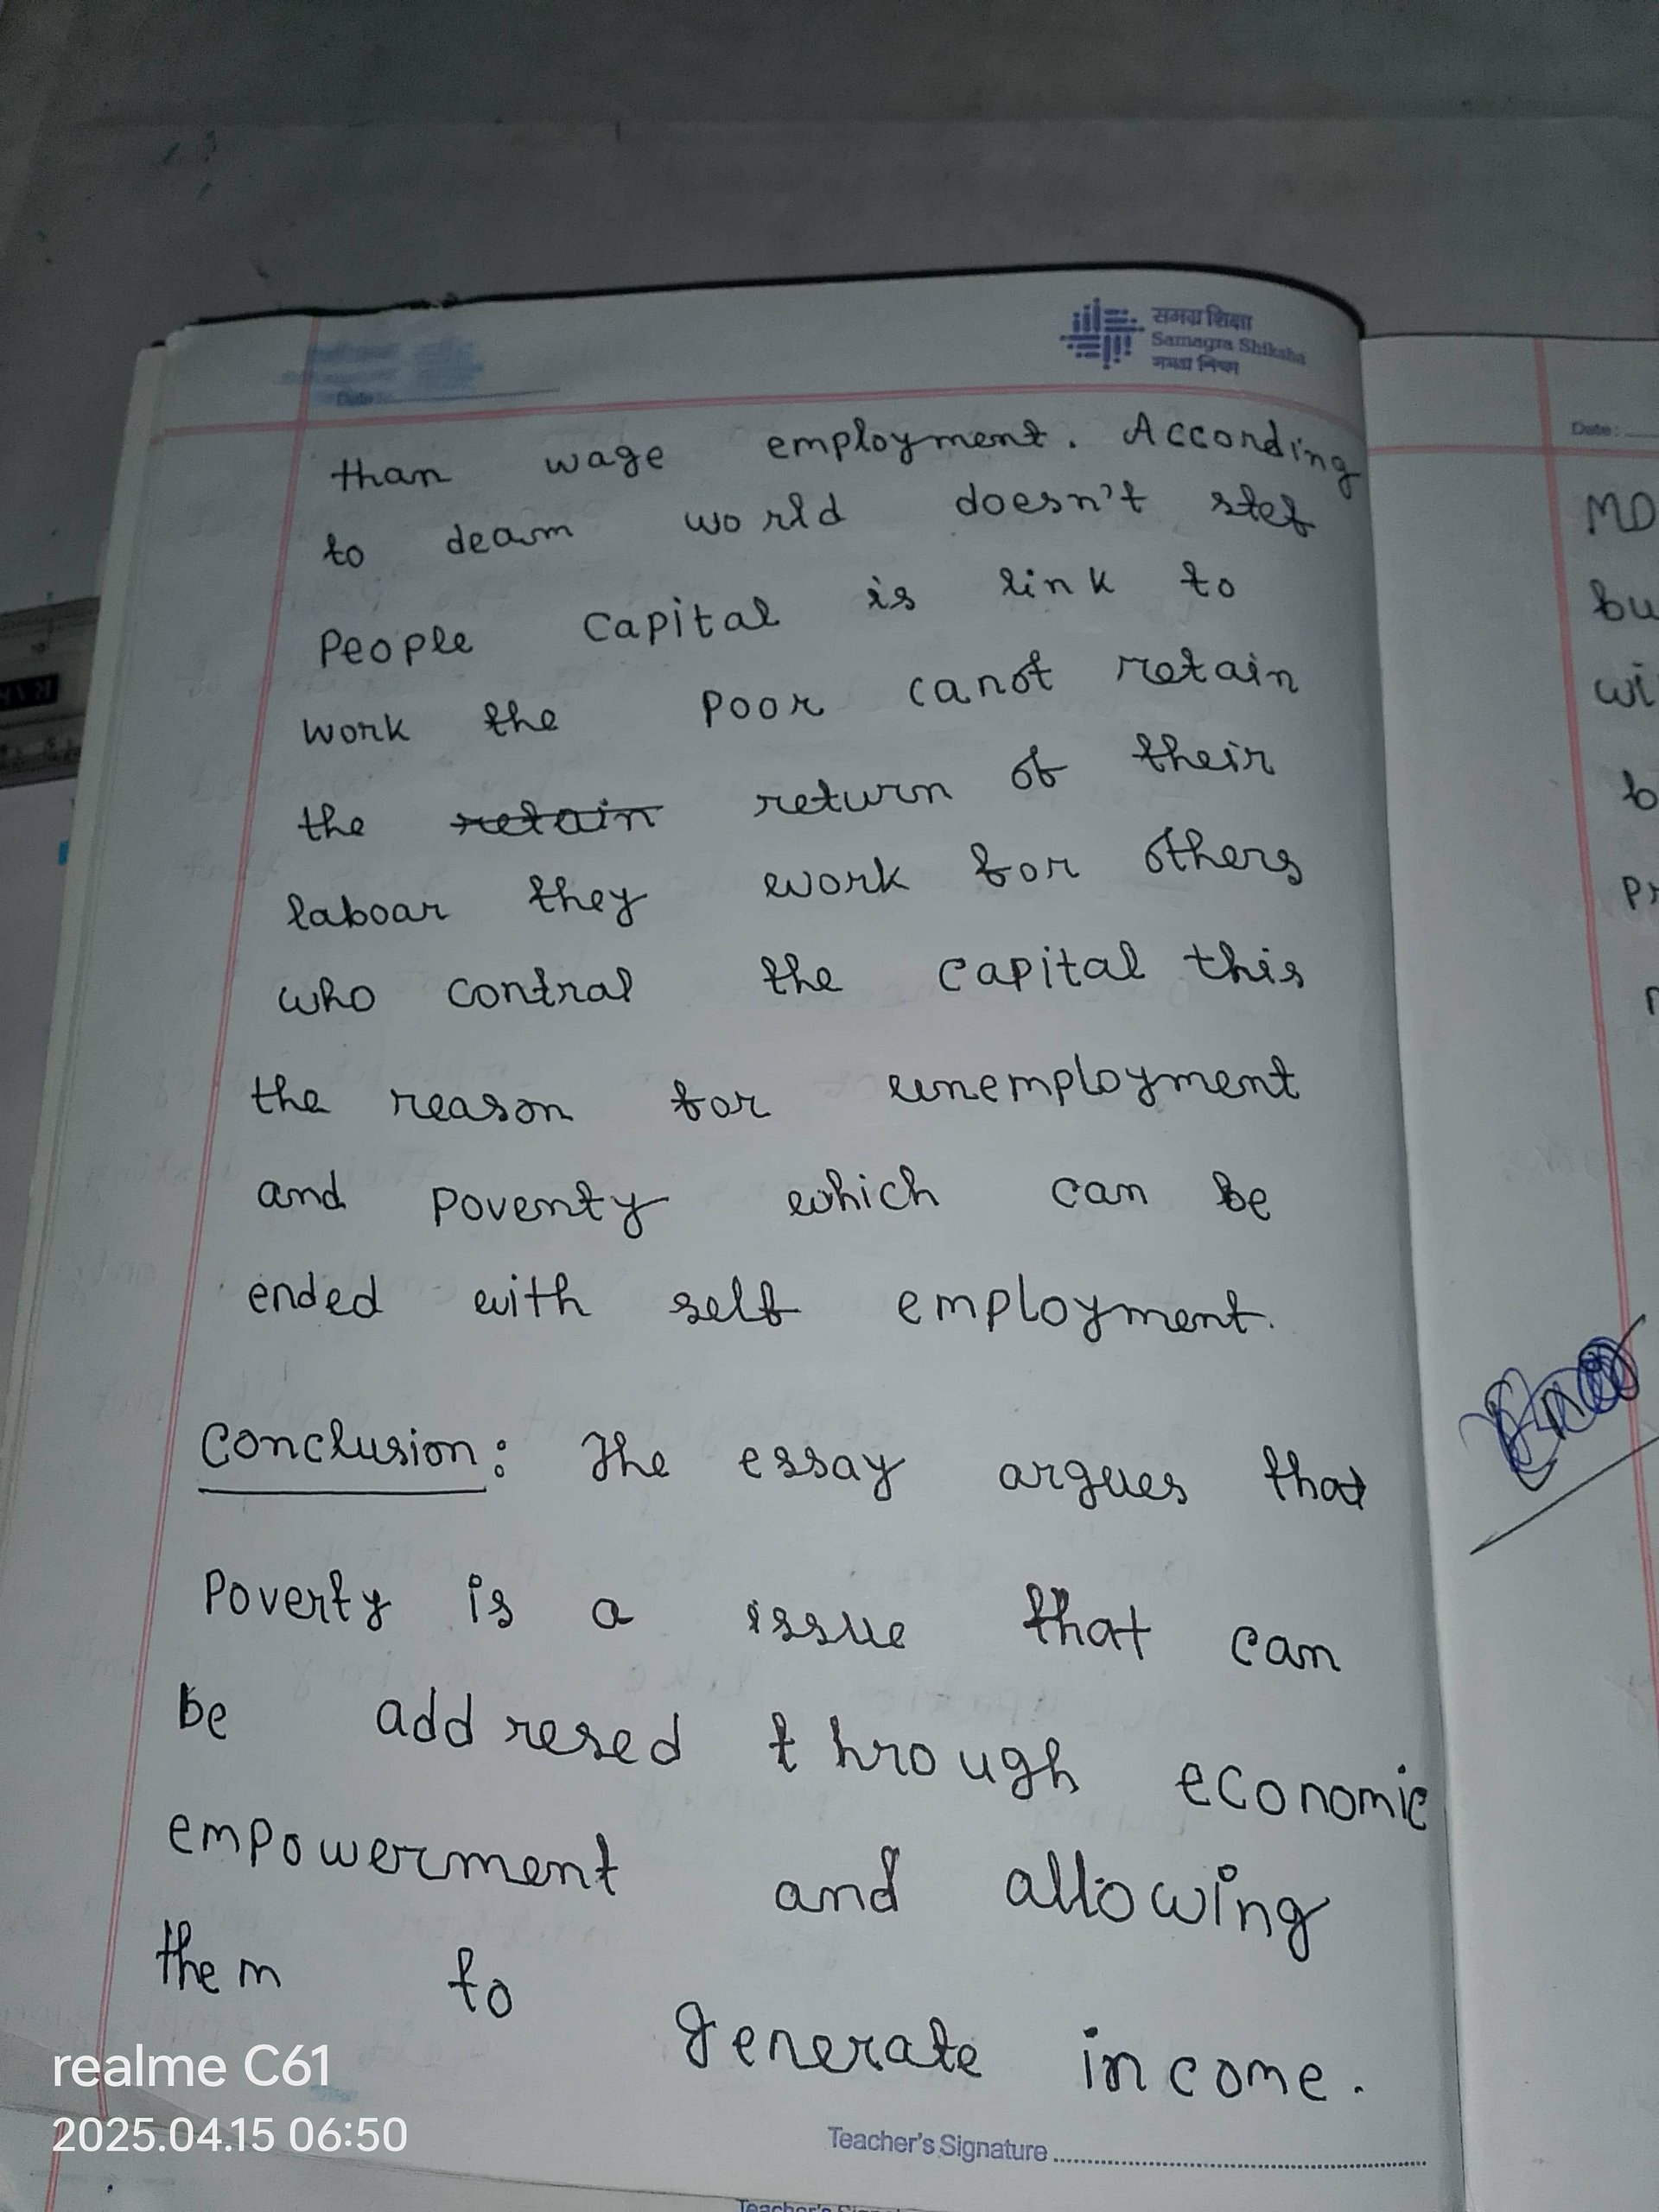 समग्र शिक्षा
Samagra Shiksha
Date :
than wage employment. According
to deam world doesn't stef
People capital is link to
work the poor canot retain
the retain return of their
laboar they work for others
who contral the capital this
the reason for unemployment
and poventy which can be
ended with self employment.
Conclusion : The essay argues that
Poverty is a issue that can
be addresed through economic
empowerment and allowing
them to generate income.
Teacher's Signature
Date :
MO
bu
wi
b
pr
realme C61
2025.04.15 06:50